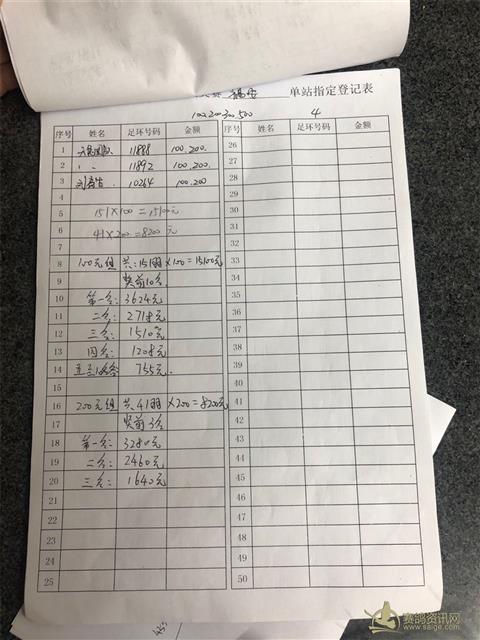 福安 单站指定登记表
100.200.300.500 4
序号 姓名 足环号码 金额 序号 姓名 足环号码 金额
1 11888 100.200. 26
2 〃 11892 100.200. 27
3 刘 10264 100.200 28
4 29
5 151×100=15100元 30
6 41×200=8200元 31
7 32
8 100元组 共:151羽×100=15100元 33
9 奖前10名 34
10 第一名: 3624元 35
11 二名: 2718元 36
12 三名: 1510元 37
13 四名: 1208元 38
14 五至10名 755元. 39
15 40
16 200元组 共41羽×200=8200元 41
17 奖前3名 42
18 第一名: 3280元 43
19 二名: 2460元 44
20 三名: 1640元 45
21 46
22 47
23 48
24 49
25 50
赛鸽资讯网
www.saige.com